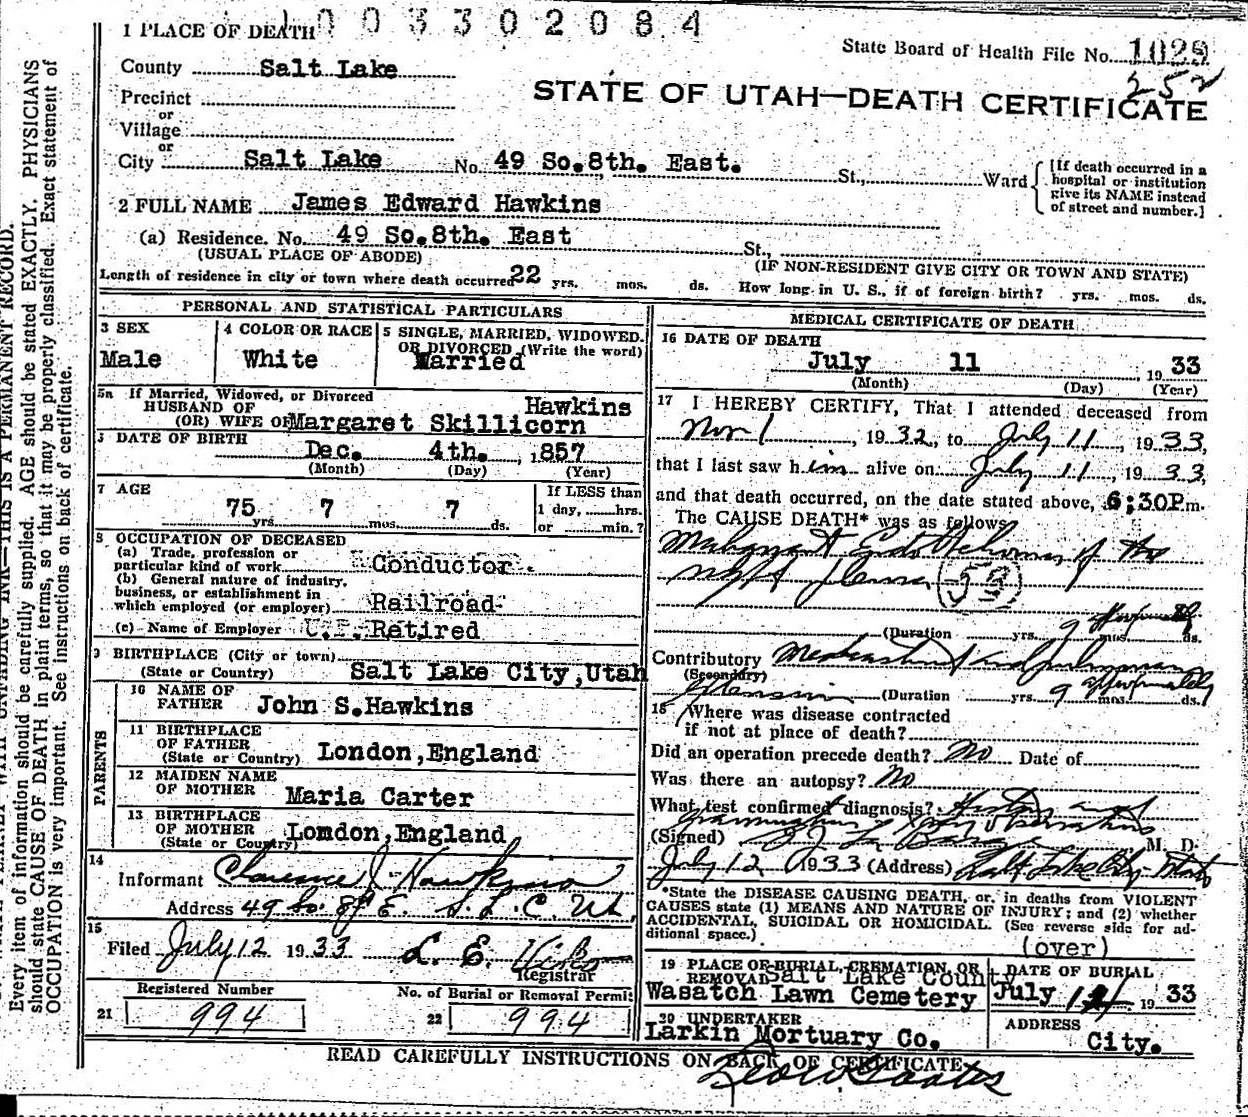 1003302084
1 PLACE OF DEATH
State Board of Health File No. 1029
252
County Salt Lake
STATE OF UTAH—DEATH CERTIFICATE
Precinct
or
Village
or
City Salt Lake No. 49 So.8th. East. St., Ward
[If death occurred in a hospital or institution give its NAME instead of street and number.]
2 FULL NAME James Edward Hawkins
(a) Residence. No. 49 So.8th. East St.,
(USUAL PLACE OF ABODE) (IF NON-RESIDENT GIVE CITY OR TOWN AND STATE)
Length of residence in city or town where death occurred 22 yrs. mos. ds. How long in U. S., if of foreign birth? yrs. mos. ds.
PERSONAL AND STATISTICAL PARTICULARS
3 SEX
Male
4 COLOR OR RACE
White
5 SINGLE, MARRIED, WIDOWED.
OR DIVORCED (Write the word)
Married
5a If Married, Widowed, or Divorced
HUSBAND OF Hawkins
(OR) WIFE OF Margaret Skillicorn
DATE OF BIRTH
Dec. 4th. ,1857
(Month) (Day) (Year)
7 AGE
75 7 7
yrs. mos. ds.
If LESS than
1 day, hrs.
or min.?
8 OCCUPATION OF DECEASED
(a) Trade, profession or
particular kind of work Conductor.
(b) General nature of industry,
business, or establishment in
which employed (or employer) Railroad
(c) Name of Employer U.P. Retired
9 BIRTHPLACE (City or town)
(State or Country) Salt Lake City,Utah
PARENTS
10 NAME OF
FATHER John S.Hawkins
11 BIRTHPLACE
OF FATHER
(State or Country) London,England
12 MAIDEN NAME
OF MOTHER Maria Carter
13 BIRTHPLACE
OF MOTHER
(State or Country) Lomdon,England
14
Informant Clarence J Hawkins
Address 49 So. 8th E. S. L. C. Ut.
15
Filed July 12 1933 L. E.
Registrar
Registered Number
21 994
No. of Burial or Removal Permit
22 994
MEDICAL CERTIFICATE OF DEATH
16 DATE OF DEATH
July 11 , 19 33
(Month) (Day) (Year)
17 I HEREBY CERTIFY, That I attended deceased from
Nov 1, 1932, to July 11, 1933,
that I last saw him alive on July 11, 1933,
and that death occurred, on the date stated above, 6:30P.m.
The CAUSE DEATH* was as follows
Malignant Endothelioma of the
right pleura 53
(Duration yrs. 9 mos. approximately ds.
Contributory Mediastinal and pulmonary
(Secondary)
extension (Duration yrs. 9 mos. approximately ds.)
18 Where was disease contracted
if not at place of death?
Did an operation precede death? No Date of
Was there an autopsy? No
What test confirmed diagnosis? History and
X ray
(Signed) M. D.
July 12 1933 (Address) Salt Lake City Utah
*State the DISEASE CAUSING DEATH, or, in deaths from VIOLENT
CAUSES state (1) MEANS AND NATURE OF INJURY; and (2) whether
ACCIDENTAL, SUICIDAL OR HOMICIDAL. (See reverse side for ad-
ditional space.)
(over)
19 PLACE OF BURIAL, CREMATION, OR
REMOVAL Salt Lake County
Wasatch Lawn Cemetery
DATE OF BURIAL
July 14 19 33
20 UNDERTAKER
Larkin Mortuary Co.
ADDRESS
City.
READ CAREFULLY INSTRUCTIONS ON BACK OF CERTIFICATE
Every item of information should be carefully supplied. AGE should be stated EXACTLY. PHYSICIANS
should state CAUSE OF DEATH in plain terms, so that it may be properly classified. Exact statement of
OCCUPATION is very important. See instructions on back of certificate.
INK—THIS IS A PERMANENT RECORD.